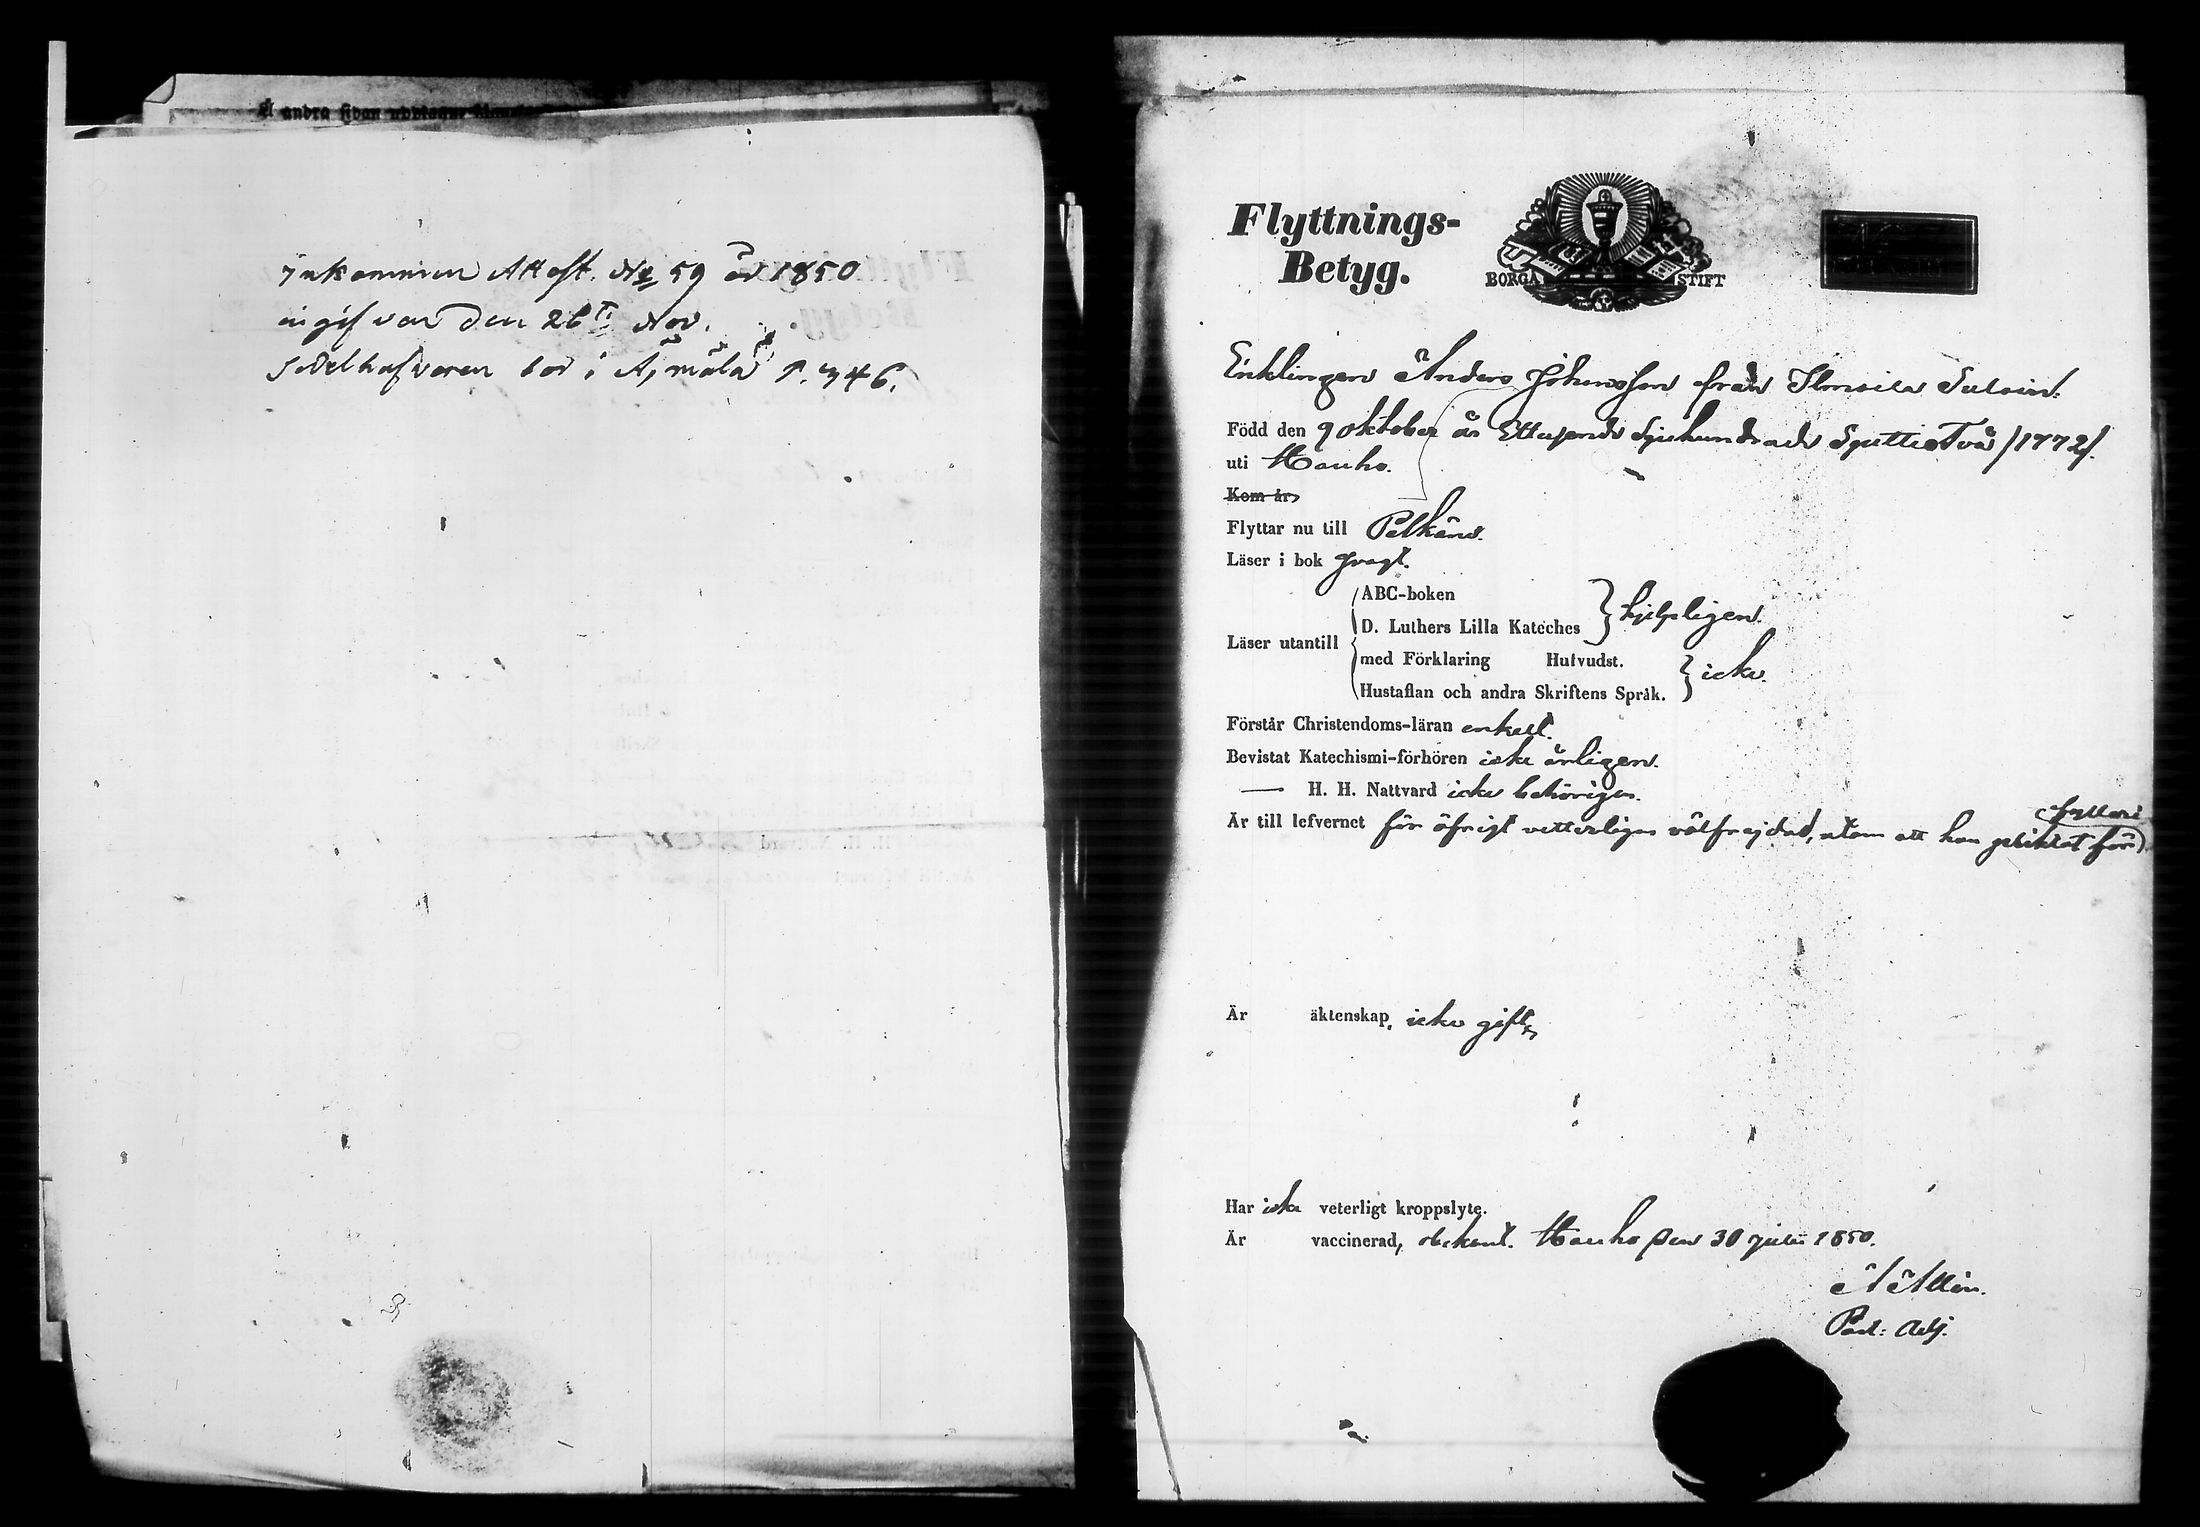 Å andra sidan
Inkommen Attest. No 59 år 1850
ingifven den 26te Nov.
Innehafvaren bor i Äjmälä P. 346.
Flyttnings-
Betyg.
BORGÅ STIFT
Enklingen Anders Johansson från
Född den 9 oktober år Ettusende Sjuhundrade Sjuttio Två /1772/.
uti Hauho.
Kom år
Flyttar nu till Pelkäne.
Läser i bok svagt.
ABC-boken
D. Luthers Lilla Kateches hjelpligen.
Läser utantill
med Förklaring Hufvudst.
icke.
Hustaflan och andra Skriftens Språk.
Förstår Christendoms-läran enkelt.
Bevistat Katechismi-förhören icke årligen.
— H. H. Nattvard icke behörigen.
Är till lefvernet för öfrigt vetterligen välfrejdad, utom att han pliktat för fylleri
Är äktenskap, icke gift
Har icke veterligt kroppslyte.
Är vaccinerad, obekant. Hauho den 30 julii 1850.
Past: Adj.